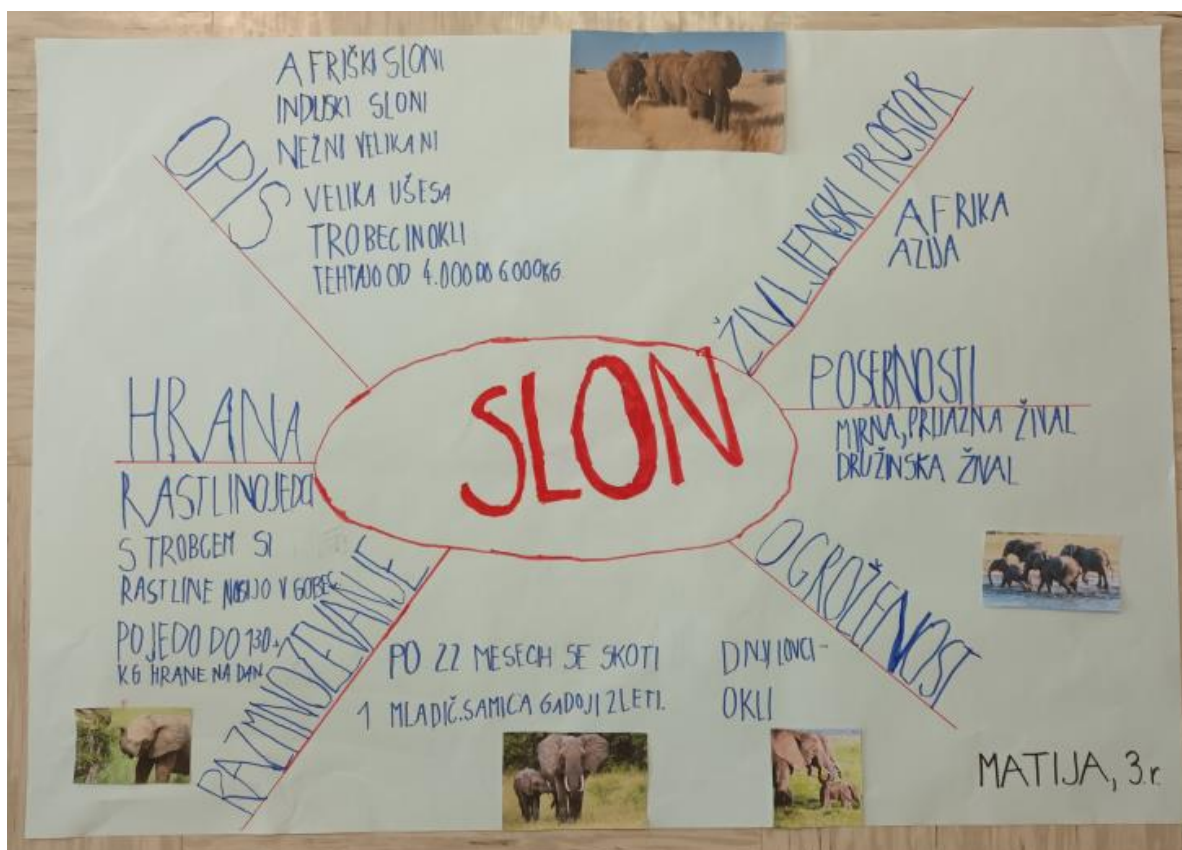 SLON
OPIS
AFRIŠKI SLONI
INDIJSKI SLONI
NEŽNI VELIKANI
VELIKA UŠESA
TROBEC IN OKLI
TEHTAJO OD 4.000 DO 6.000 KG
ŽIVLJENSKI PROSTOR
AFRIKA
AZIJA
POSEBNOSTI
MIRNA, PRIJAZNA ŽIVAL
DRUŽINSKA ŽIVAL
OGROŽENOST
DIVJI LOVCI -
OKLI
RAZMNOŽEVANJE
PO 22 MESECIH SE SKOTI
1 MLADIČ. SAMICA GA DOJI 2 LETI.
HRANA
RASTLINOJEDCI
S TROBCEM SI
RASTLINE NOSIJO V GOBEC.
POJEDO DO 130
KG HRANE NA DAN
MATIJA, 3.r.